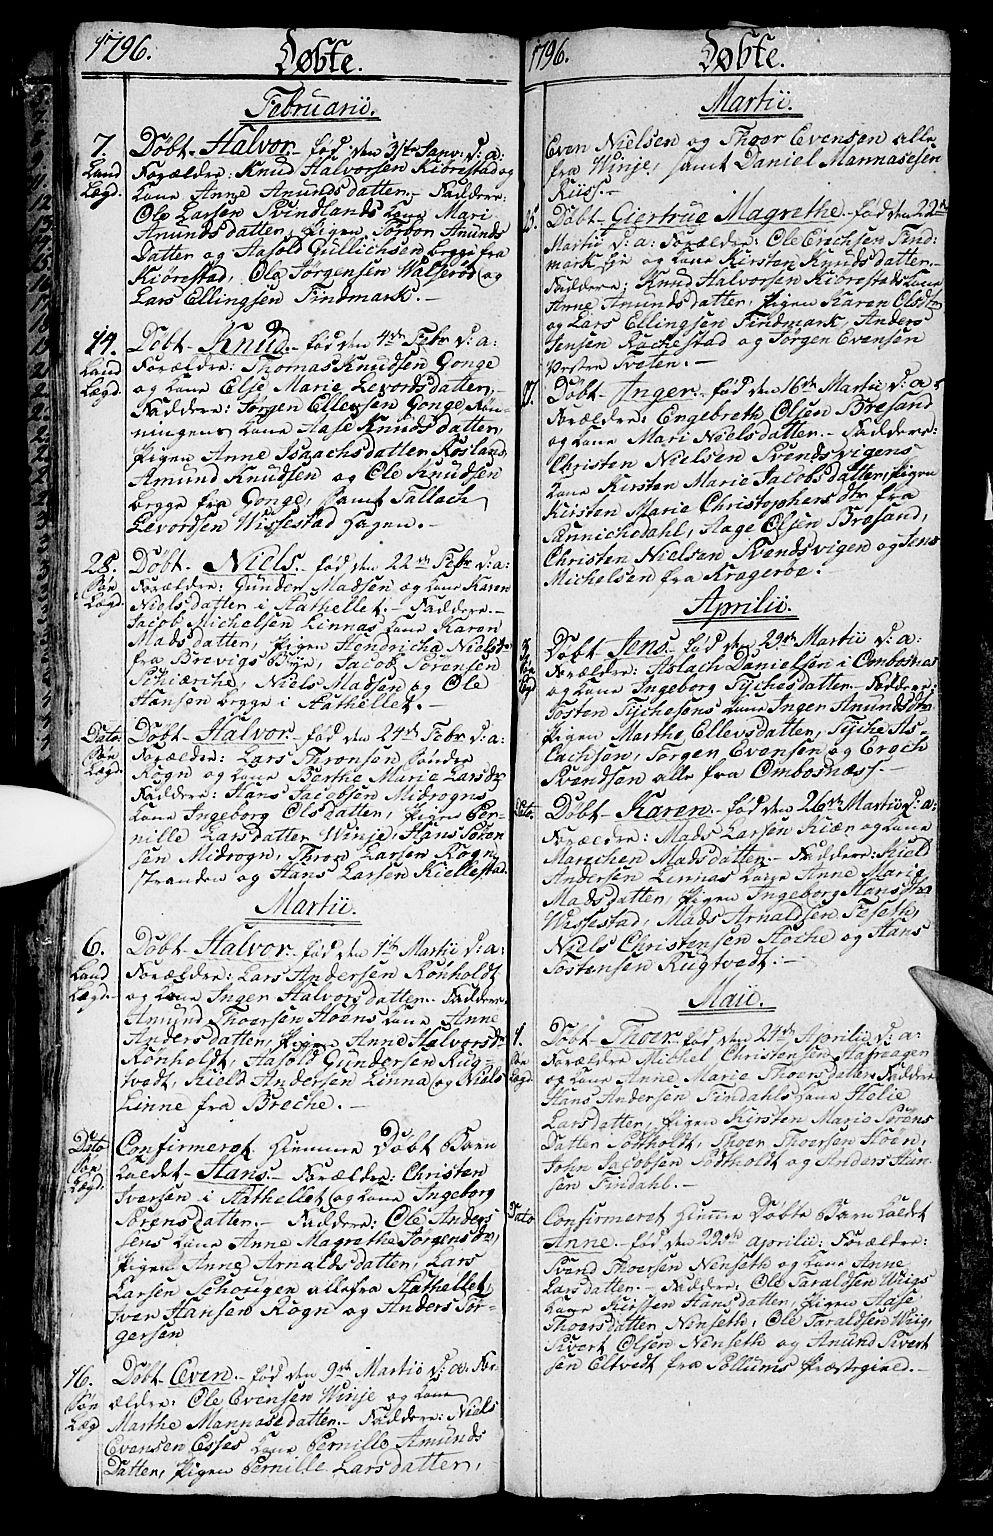 1796.
Døbte.
Februarii.
7.
Land
Lægd.
Døbt Halvor født den 31te Janv: d: a:
Forældre: Knud Halvorsen Kiørestad og
kone Anne Amundsdatter. Faddere:
Ole Larsen Svindlands kone Mari
Amundsdatter, Pigen Torbor Amunds
Datter og Aasold Gullichsen begge fra
Kiørestad, Ole Jørgensen Walserød og
Lars Ellingsen Findmark.
14.
Land
Lægd.
Døbt Knud født den 4de Febr d: a:
Forældre: Thomas Knudsen Gonge
og kone Else Marie Levordsdatter
Faddere: Jørgen Ellevsen Gonge Røn-
ningens kone Aase Knudsdatter,
Pigen Anne Isaachsdatter Rosland
Amund Knudsen og Ole Knudsen
begge fra Gonge, samt Sallach
Levordsen Wissestad Hagen.
28.
Søn
Lægd.
Døbt Niels født den 22de Febr d: a:
Forældre: Gunder Madsen og kone Karen
Nielsdatter i Aathellet. Faddere.
Jacob Michelsen Linnas kone Karen
Madsdatter, Pigen Hendriche Nielsdr
fra Brevigs Bye, Jacob Sørensen
Schiærche, Niels Madsen og Ole
Hansen begge i Aathellet.
Dato
Søn
Lægd.
Døbt Halvor født den 24de Febr d: a:
Forældre: Lars Thronsen søndre
Rogn og kone Berthe Marie Larsdr
Faddere: Hans Jacobsen Midrogns
kone Ingeborg Olsdatter, Pigen Per-
nille Larsdatter Winje, Hans Søren
sen Midrogn, Thron Larsen Rogn
stranden og Hans Larsen Kiellestad.
Martii.
6.
Land
Lægd.
Døbt Halvor født den 1te Martii d: a:
Forældre: Lars Andersen Rønholdt
og kone Inger Halvorsdatter. Faddere
Amund Thoersen Hoens kone Anne
Andersdatter, Pigen Anne Halvorsdr
Rønholdt, Aasold Gundersen Rug-
tvedt, Kield Andersen Linna og Niels
Linne fra Breche.
Dato
Søn
Lægd.
Confirmeret Hiemme Døbt Barn
kaldet Hans. Forældre: Christen
Iversen i Aathellet og kone Ingeborg
Sørensdatter. Faddere: Ole Anders
sens kone Anne Magrethe Jørgensdr,
Pigen Anne Arnaldsdatter, Lars
Larsen Schougen alle fra Aathellet,
Iver Hansen Rogn og Anders Jør-
gersen
16.
Søn
Lægd
Døbt Even født den 9de Martii d: a: For
ældre: Ole Evensen Winje og kone
Marthe Mannasedatter. Faddere: Niels
Evensen Esses kone Pernille Amunds
Datter, Pigen Pernille Larsdatter,
1796.
Døbte.
Martii.
Even Nielsen og Thoer Evensen alle
fra Winje, samt Daniel Mannasesen
Kiis.
25.
Døbt Giertrue Magrethe født den 22de
Martii d: a: Forældre: Ole Erichsen Find-
mark Eje og kone Kirsten Knudsdatter.
Faddere: Knud Halvorsen Kiørestads kone
Anne Amundsdatter, Pigen Karen Olsdtr
og Lars Ellingsen Findmark, Anders
Jensen Rochestad og Jørgen Evensen
Tveten.
27.
Døbt Inger født den 16de Martii d: a:
Forældre: Engebreth Olsen Bresand
og kone Mari Nielsdatter. Faddere:
Christen Nielsen Svendsvigens
kone Kirsten Marie Jacobsdatter, Pigen
Kirsten Marie Christophersdr fra
Sannichedahl, Aage Olsen Bresand,
Christen Nielsen Svendsvigen og Jens
Michelsen fra Kragerøe.
Aprilii.
3.
Søn
Lægd
Døbt Jens født den 29de Martii d: a:
Forældre: Aslach Danielsen i Ombosnæs
og kone Ingeborg Tychesdatter. Faddere:
Tosten Tychesens kone Inger Amundsdtr
Pigen Marthe Ellevsdatter, Tyche As-
lachsen, Torgen Evensen og Erach
Svendsen alle fra Ombosnæss.
Dato.
Døbt Karen født den 26de Martii d: a:
Forældre: Mads Larsen Kiær og kone
Marichen Madsdatter. Faddere: Kield
Andersen Linnas kone Anne Marie
Madsdatter, Pigen Ingeborg Hansdtr
Wissestad, Mads Arnaldsen Feseth,
Niels Christensen Aache og Hans
Tostensen Rugtvedt.
Maii.
1.
Søn
Lægd
Døbt Thoer født den 24de Aprilii d: a:
Forældre Michel Christensen Aafreagen
og kone Anne Marie Thoersdatter. Faddere
Hans Andersen Findahls kone Helie
Larsdatter, Pigen Kirsten Marie Sørens
Datter Sodtholdt, Thoer Thoersen Hoen,
John Jacobsen Sodtholdt og Anders Han-
sen Findahl.
Dato
Confirmeret Hiemme Døbte Barn kaldet
Anne født den 22de aprilii: Forældre:
Svend Thoersen Nenseth og kone Anne
Larsdatter. Faddere, Ole Taraldsen Wiigs
kone Kirsten Hansdatter, Pigen Aase
Thoersdatter Nenseth, Ole Taraldsen Wiig,
Sivert Olsen Nenseth og Amund Sivert
sen Eltvedt fra Sollums Præstegield.